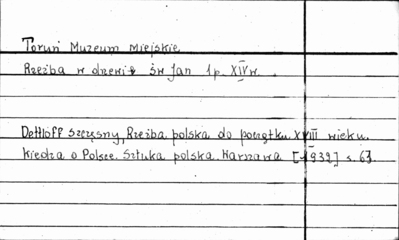 Toruń Muzeum Miejskie
Rzeźba w drzewie św Jan 1 p. XIV w.
Dettloff Szczęsny, Rzeźba polska do początku XVIII wieku.
Wiedza o Polsce. Sztuka polska. Warszawa [1932] s. 63.